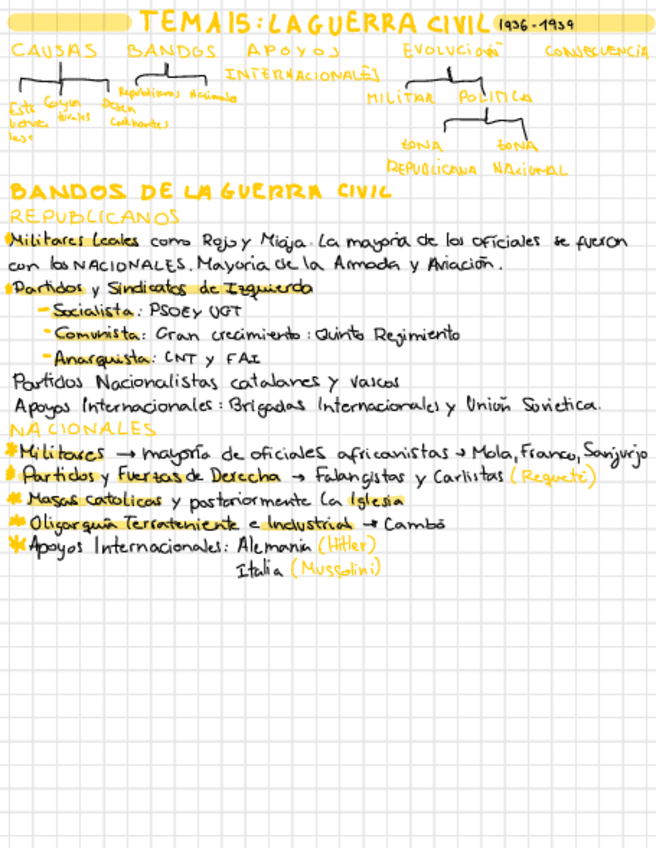 TEMA15: LA GUERRA CIVIL 1936-1939
CAUSAS BANDOS APOYOS INTERNACIONALES EVOLUCIÓN CONSECUENCIA
Republicanos Nacionales
MILITAR POLITICA
ZONA REPUBLICANA ZONA NACIONAL
BANDOS DE LA GUERRA CIVIL
REPUBLICANOS
Militares Leales como Rojo y Miaja. La mayoría de los oficiales se fueron
con los NACIONALES. Mayoria de la Armada y Aviación.
Partidos y Sindicatos de Izquierda
- Socialista: PSOE y UGT
- Comunista: Gran crecimiento: Quinto Regimiento
- Anarquista: CNT y FAI
Partidos Nacionalistas catalanes y vascos
Apoyos Internacionales: Brigadas Internacionales y Unión Sovietica.
NACIONALES
* Militares → mayoría de oficiales africanistas → Mola, Franco, Sanjurjo
* Partidos y Fuerzas de Derecha → Falangistas y Carlistas (Requeté)
* Masas catolicas y posteriormente la Iglesia
* Oligarquía Terrateniente e Industrial → Cambó
* Apoyos Internacionales: Alemania (Hitler)
Italia (Mussolini)